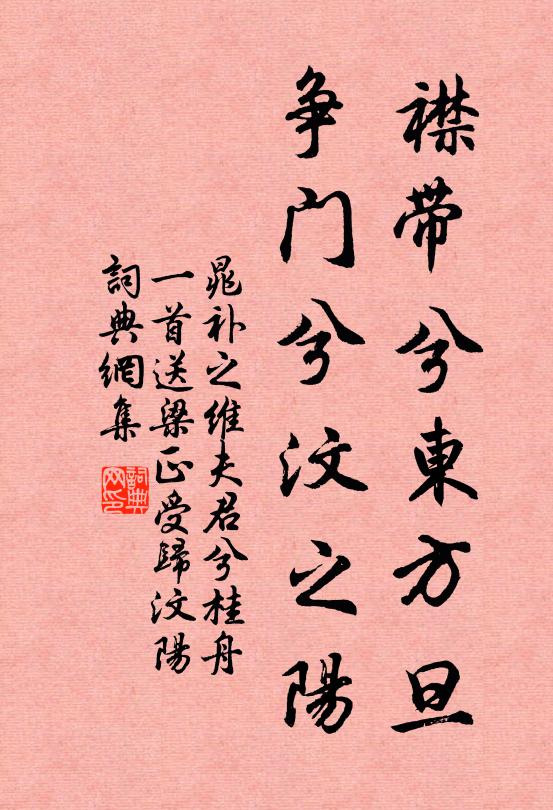 襟带兮東方旦
争门兮汶之陽
晁补之维夫君兮桂舟
一首送梁正受歸汶陽
詞典網集
詞典网印